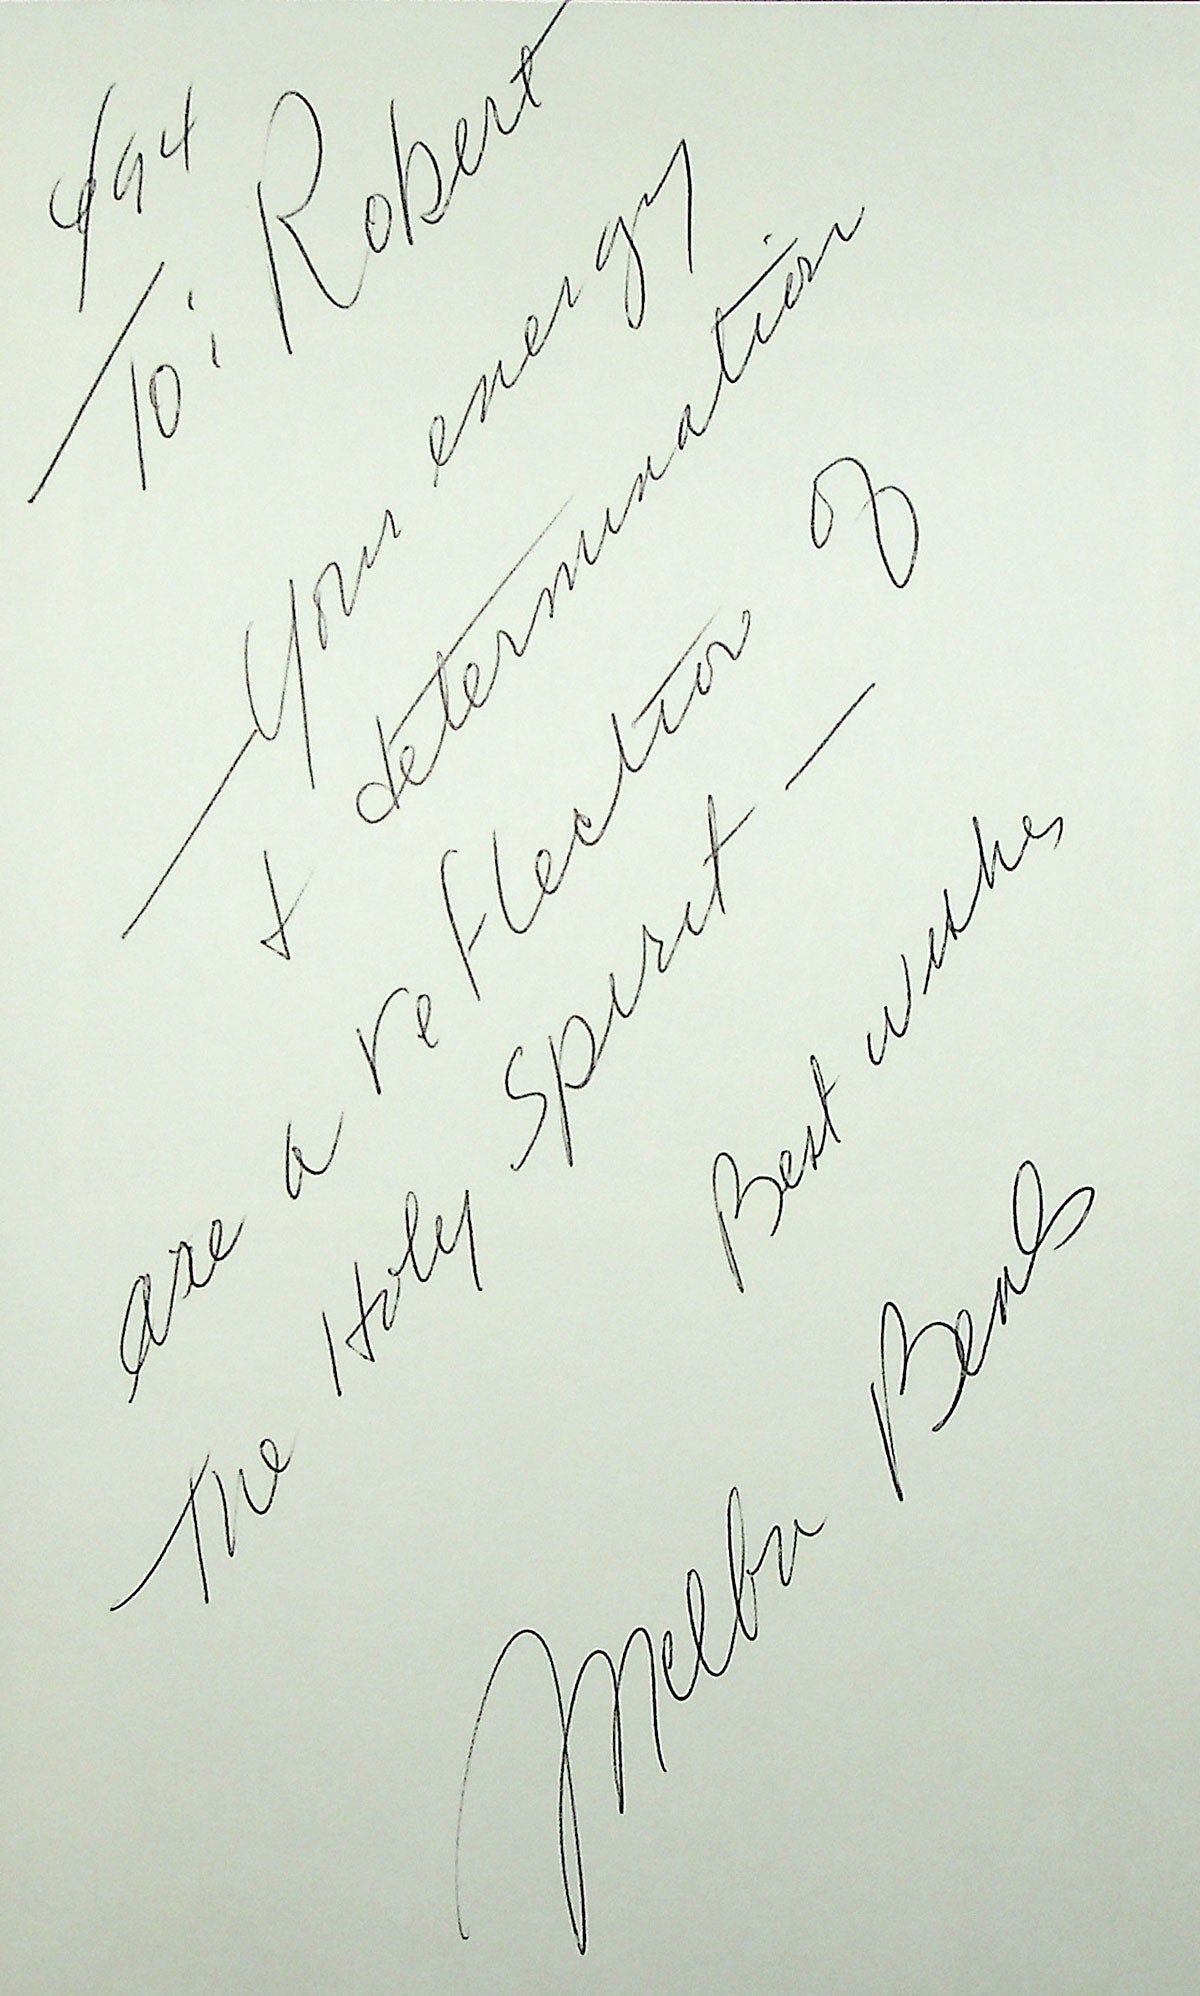 To: Robert
Your energy
& determination
are a reflection of
the Holy Spirit —
Best wishes
Melba Beals